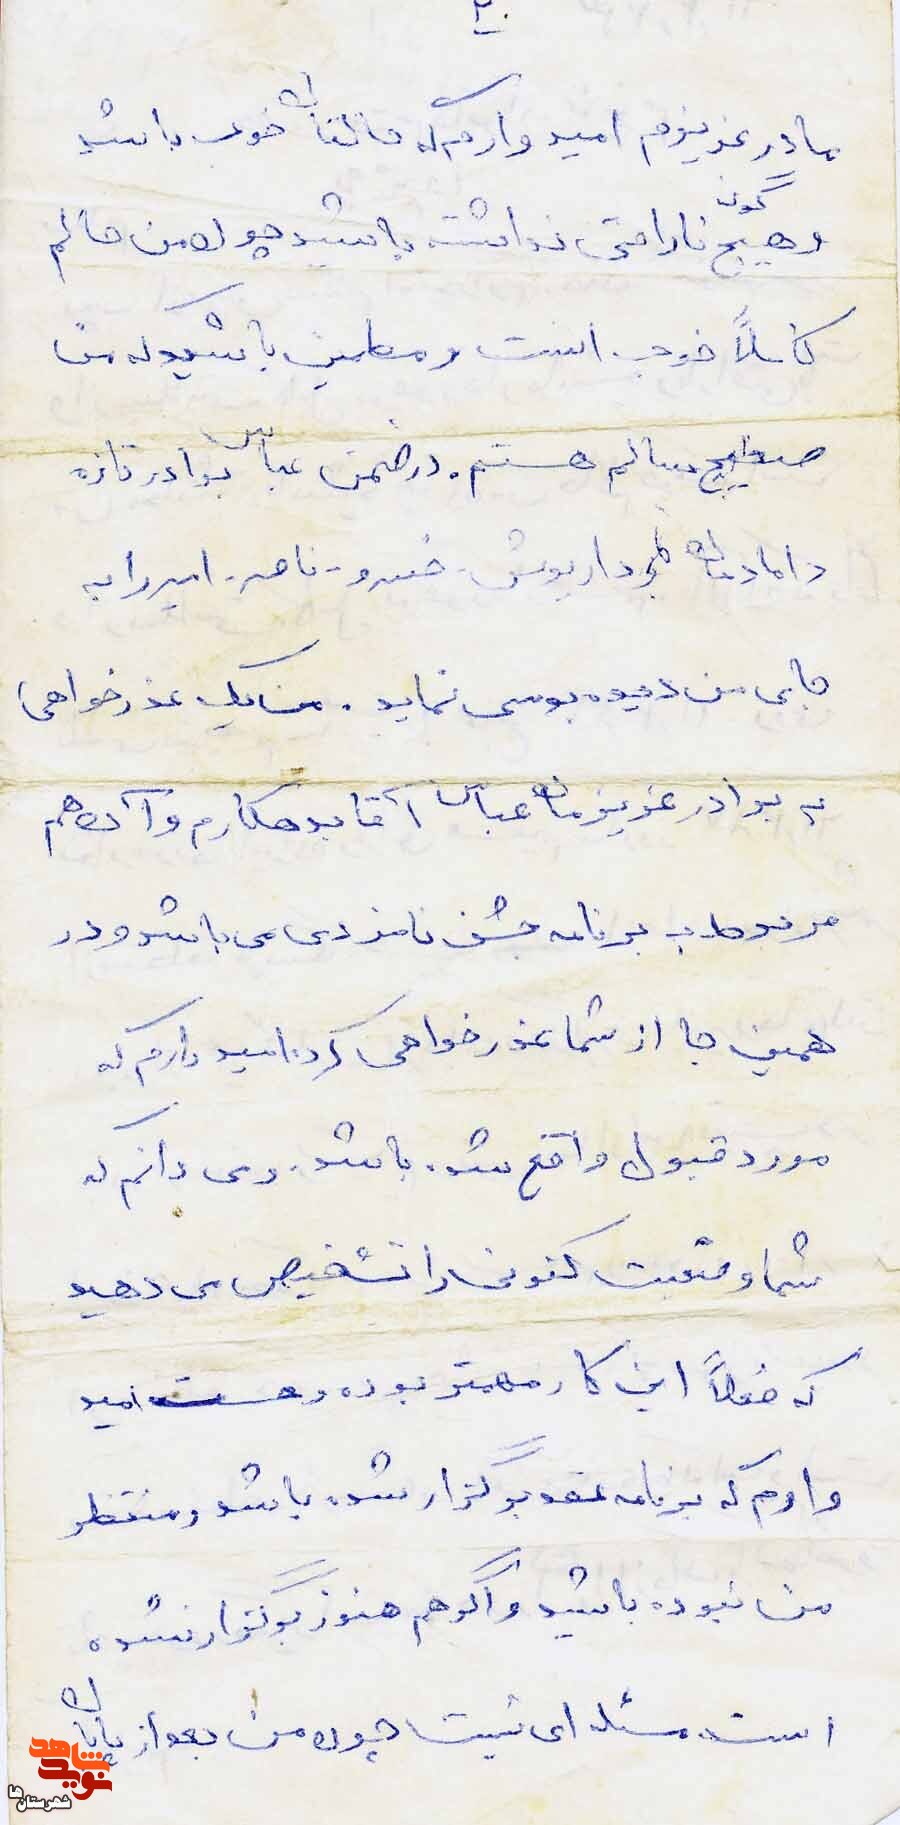 ۲
مادر عزیزم امیدوارم که حالتان خوب باشد
و هیچ گونه ناراحتی نداشته باشید چون من حالم
کاملاً خوب است و مطمئن باشید که من
صحیح سالم هستم. در ضمن عباس برادر تازه
دامادمان داریوش - خسرو - ناصر - امیر را به
جای من دیده بوسی نماید. من یک عذرخواهی
به برادر عزیزمان عباس آقا بدهکارم و آن هم
مربوط به برنامه جشن نامزدی می باشد و در
همین جا از شما عذرخواهی کرده امید دارم که
مورد قبول واقع شده باشد. و می دانم که
شما وضعیت کنونی را تشخیص می دهید
که فعلاً این کار مهمتر بوده و هست امید
وارم که برنامه عقد برگزار شده باشد و منتظر
من نبوده باشید و اگر هم هنوز برگزار نشده
است مسئله ای نیست چون من بعد از پایان
نوید شاهد
شهرستان ها